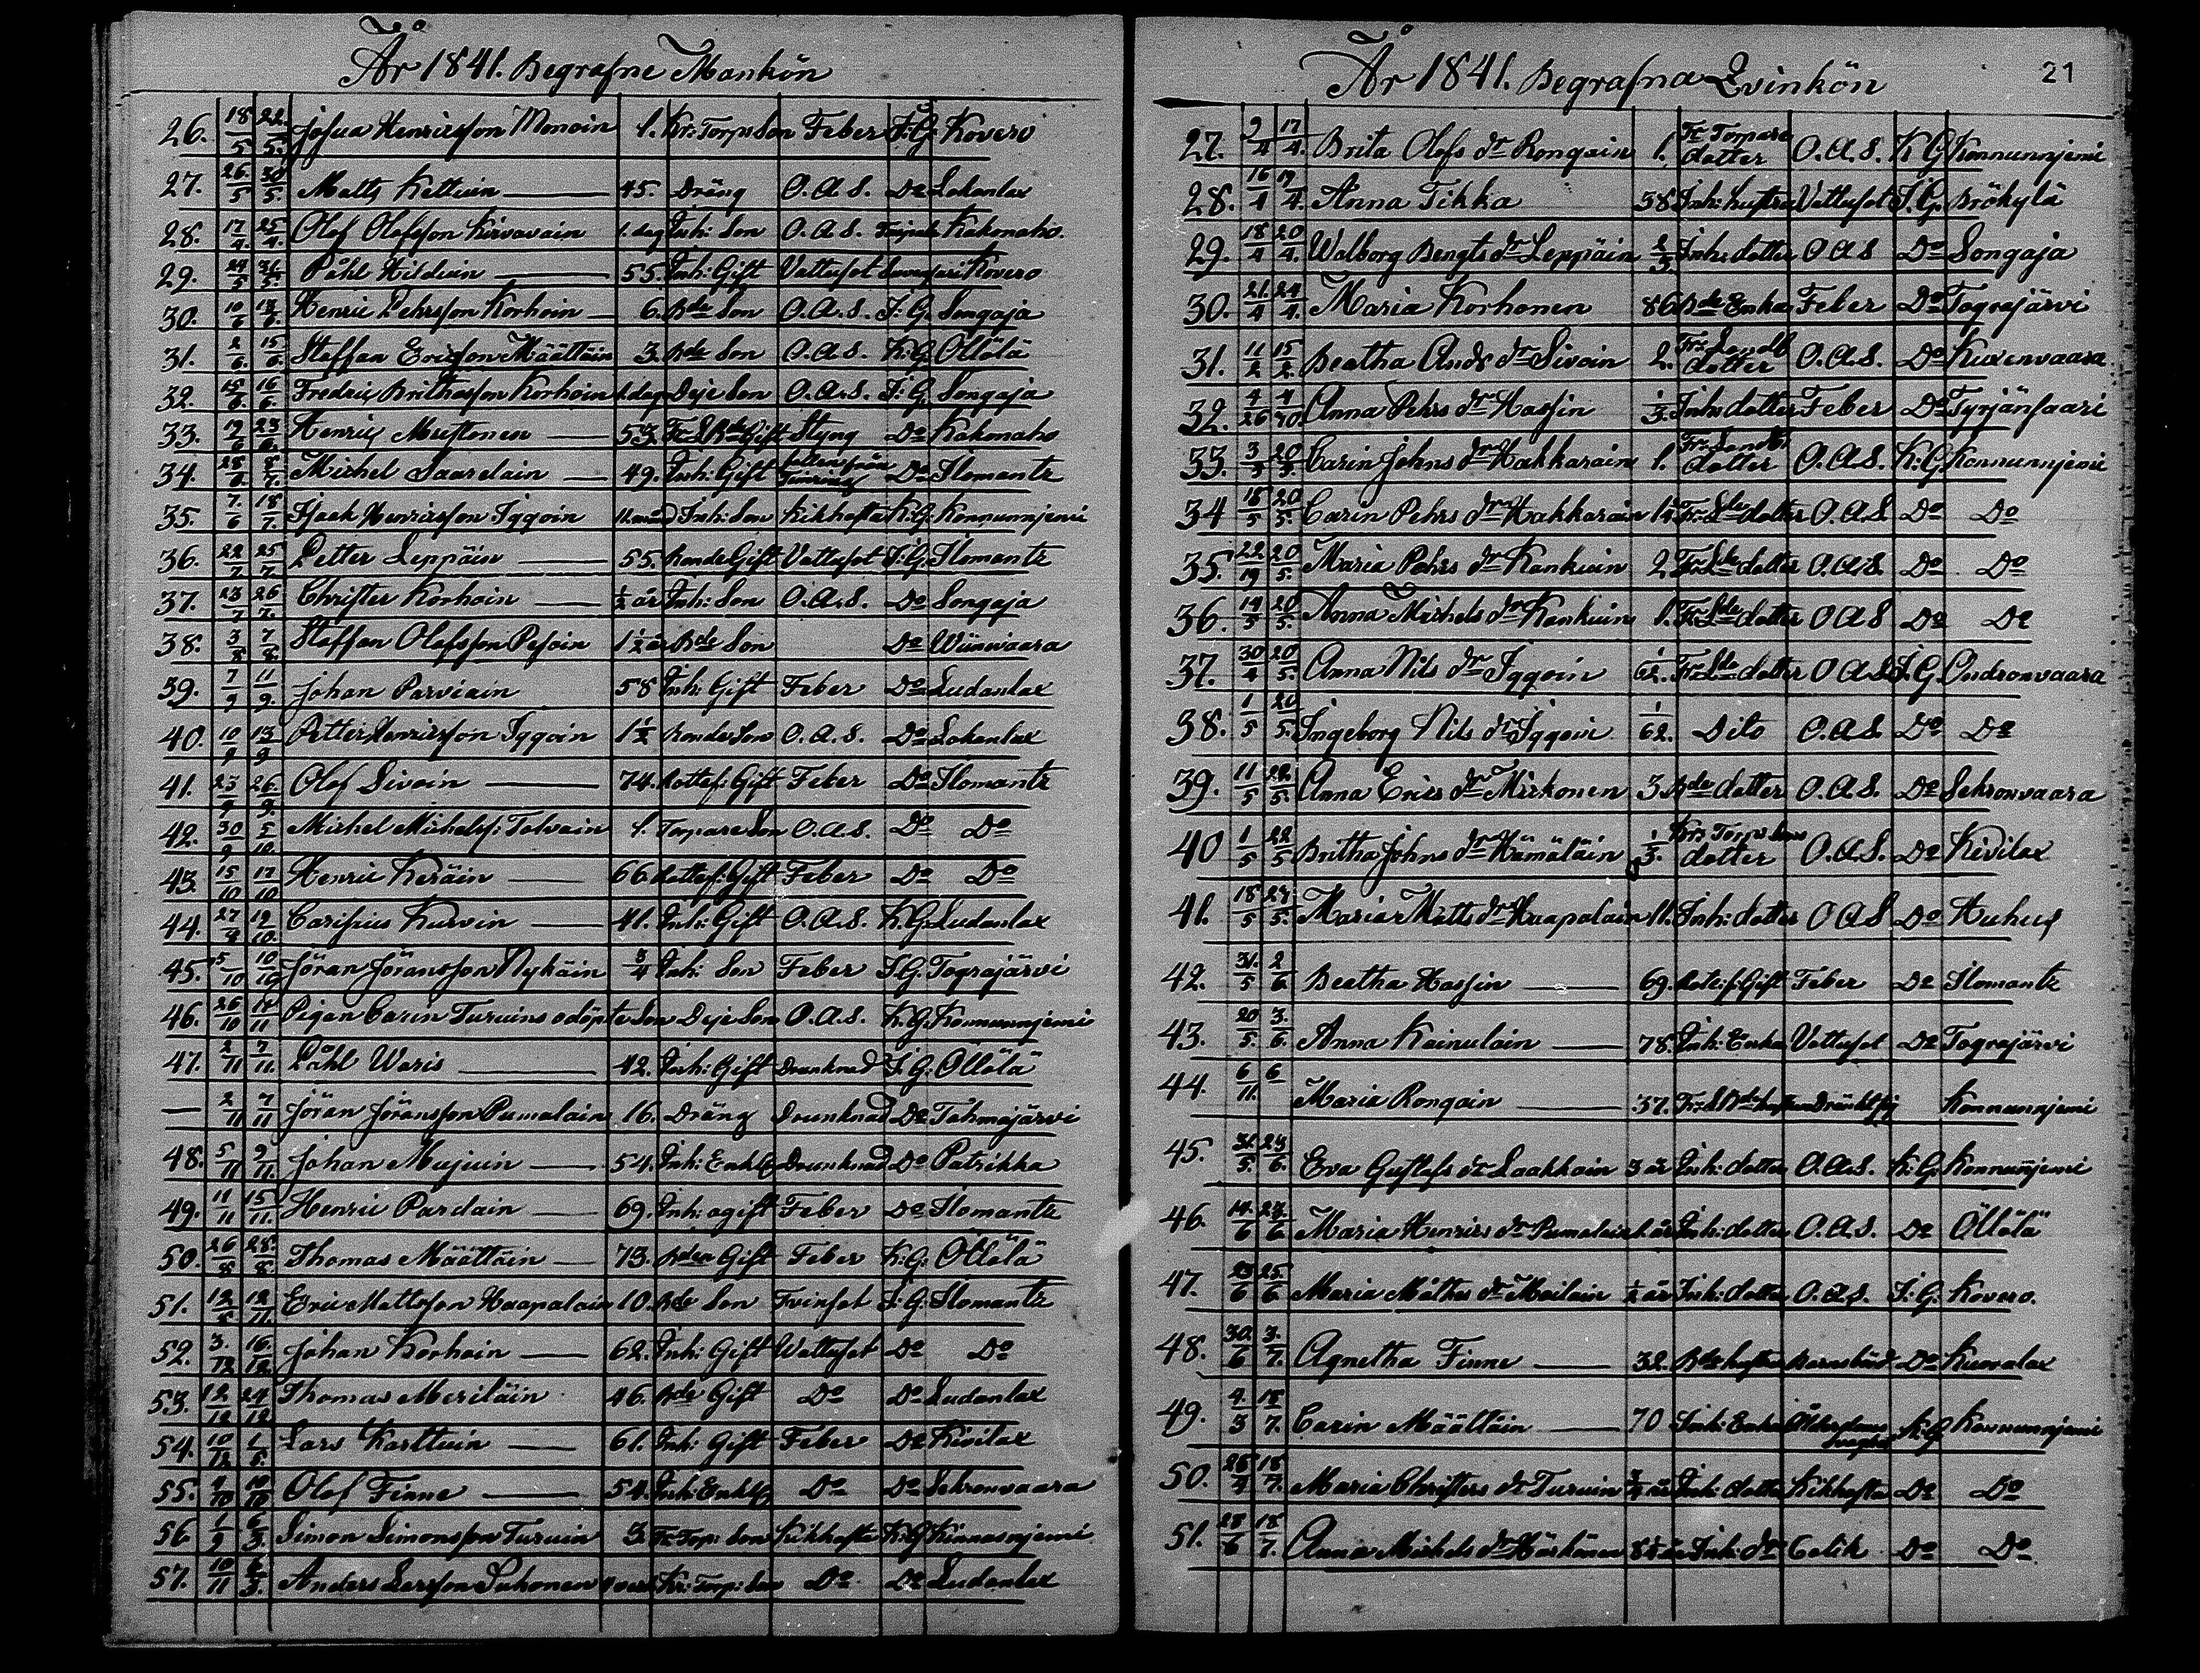 År 1841. Begrafne Mankön
26. 18/5 22/5. Josua Henricsson Monoin 1. Kr: Torps Son Feber I: G. Kovero
27. 26/5 30/5. Matts Kettuin 45. Dräng O. A. S. Do Lokanlax
28. 17/4. 25/4. Olof Olofsson Kirvavain 1. dag Inh: Son O. A. S. Kakonaho.
29. 24/5 31/5. Påhl Hilduin 55. Inh: Gift Vattusot Kovero
30. 10/6 13/6. Henric Pehrsson Korhoin 6. Bde Son O. A. S. I: G. Songaja
31. 2/6. 15/6. Staffan Ericsson Määttäin 3. Bde Son O. A. S. K: G. Öllölä
32. 15/6 16/6. Fredric Brithasson Korhoin 1. dag Deje Son O. A. S. I: G. Songaja
33. 19/6 23/6. Henric Mustonen Styng Do Kakonaho
34. Michel Saarelain 49. Inh: Gift Do Ilomants
35. 7./6 18/7. Isaak Henricsson Iggoin 11. mån Inh: Son Kikhosta K: G: Konnunnjemi
36. 22/7. 25/7. Petter Leppäin 55. Bonde Gift Vattusot I: G. Ilomants
37. 23/7 26/7. Christer Korhoin 1/2 år Inh: Son O. A. S. Do Songaja
38. 3/8 7/8. Staffan Olofsson Pesoin 1 1/2 å Bde Son Do Wiinivaara
39. 7/9 11/9. Johan Parviain 58 Inh: Gift Feber Do Ludanlax
40. 10/9 13/9 Petter Henricsson Iggoin 1 1/2 Bonde Son O. A. S. Do Lokanlax
41. 23/9 26./9. Olof Sivoin 74. Rottef: Gift Feber Do Ilomants
42. 30/9 5/10. Michel Michelss: Tolvain 1. Torpare Son O. A. S. Do Do
43. 15/10 17/10 Henric Keräin 66. Rottef: Gift Feber Do Do
44. 27/9 19/10. Carisius Kurvin 41. Inh: Gift O. A. S. K: G. Ludanlax
45. 5/10 10/10 Jöran Jöransson Nykäin 3/4 Inh: Son Feber I: G. Tograjärvi
46. 26/10 14/11 Pigan Carin Turuins odöpte Son Deje Son O. A. S. K: G. Konnunnjemi
47. 2/11 7/11. Påhl Waris 42. Inh: Gift Drunknad I: G: Öllölä
— 2/11 7/11 Jöran Jöransson Pumalain 16. Dräng Drunknad Do Tohmajärvi
48. 5/11 9/11. Johan Mujuin 54. Inh: Enkl: Drunknad Do Patrikka
49. 11/11 15/11. Henric Pardain 69. Inh: ogift Feber Do Ilomants
50. 26/8 28./8. Thomas Määttäin 73. Bden Gift Feber K: G: Öllölä
51. 12/5 12/11. Eric Mattsson Haapalain 10. Bde Son Tvinsot I: G: Ilomants
52. 3./12 16./12 Johan Korhoin 62. Inh: Gift Wattusot Do Do
53. 12/12 24/12 Thomas Meriläin 46. Bde Gift Do Do Ludanlax
54. 10/12 1/5. Lars Karttuin 61. Inh: Gift Feber Do Kivilax
55. 4/10 10/10 Olof Finne 54. Inh: Enkl: Do Do Sehronvaara
56 1/9 6/3. Simon Simonsson Turuin 3. Fr: Torp: Son Kikhosta K: G Kinnasnjemi
57. 10/11 6/3. Anders Larsson Puhonen Kr: Torp: Son Do Do Ludanlax
År 1841. Begrafna Qvinkön 21
27. 9/4 17/4. Brita Olofs dr Rongain 1. Fr Torpare dotter O. A. S. K G Konnunnjemi
28. 16/4 19/4. Anna Tikka 58 Inh: hustru Vattusot I. G. Brökylä
29. 18/4 20/4. Walborg Bengts dr Leppäin 2/3 Inh: dotter O A S Do Songaja
30. 21./4 24/4. Maria Korhonen 86 Bde Enka Feber Do Tograjärvi
31. 11/2 15/2. Beatha Ands dr Sivoin 2. dotter O. A. S. Do Kuxenvaara
32. 4/26 4/30 Anna Pehrs dr Hassin 1/3. Inh: dotter Feber Do Tyrjänsaari
33. 3/5 20/5. Carin Johns dr Hakkarain 1. dotter O. A. S. K: G. Konnunnjemi
34 18/5 20/5. Carin Pehrs dr Hakkarain dotter O. A. S. Do Do
35. 22/19 20/5. Maria Pehrs dr Kankuin 2. dotter O. A. S. Do Do
36. 14/5 20/5. Anna Michels dr Kankuin 1. dotter O A S Do Do
37. 30/4 20/5. Anna Nils dr Iggoin 1/62. dotter O A S I. G. Ondronvaara
38. 1/5 20/5. Ingeborg Nils dr Iggoin 1/62. Dito O. A. S. Do Do
39. 11/5 22./5. Anna Erics dr Mickonen 3. Bde dotter O. A. S. Do Sehronvaara
40 1/5 22/5 Britha Johns dr Hämäläin 1/3. Krs Torps dotter O. A. S. Do Kivilax
41. 18/5 23./5. Maria Matts dr Haapalain 11. Inh: dotter O A S Do Huhus
42. 31./5 2/6. Beatha Hassin 69. Rottef: Gift Feber Do Ilomants
43. 20/5. 3./6. Anna Kainulain 78. Inh: Enka Vattusot Do Tograjärvi
44. 6/11. 6 Maria Rongain 37. Konnunnjemi
45. 31./5. 23/6. Eva Gustafs dr Laakkoin 3 år Inh: dotter O. A. S. K: G. Konnunnjemi
46. 14./6 23/6. Maria Henrics dr Pumalain 1. år Inh: dotter O. A. S. Do Öllölä
47. 23/6 25./6 Maria Måthes dr Moilain 1/2 år Inh: dotter O. A. S. I: G. Kovero.
48. 30./6 3./7. Agnetha Finne 32. Bde hustru Barnsbörd Do Kuoralax
49. 4./3 18/7. Carin Määttäin 70 Inh: Enka Ålderdoms svaghet K: G Konnunnjemi
50. 28/4 18/7. Maria Christers dr Turuin Inh: dotter Kikhosta Do Do
51. 28/6 18/7. Anna Michels dr Härkönen Inh: dr Colik Do Do